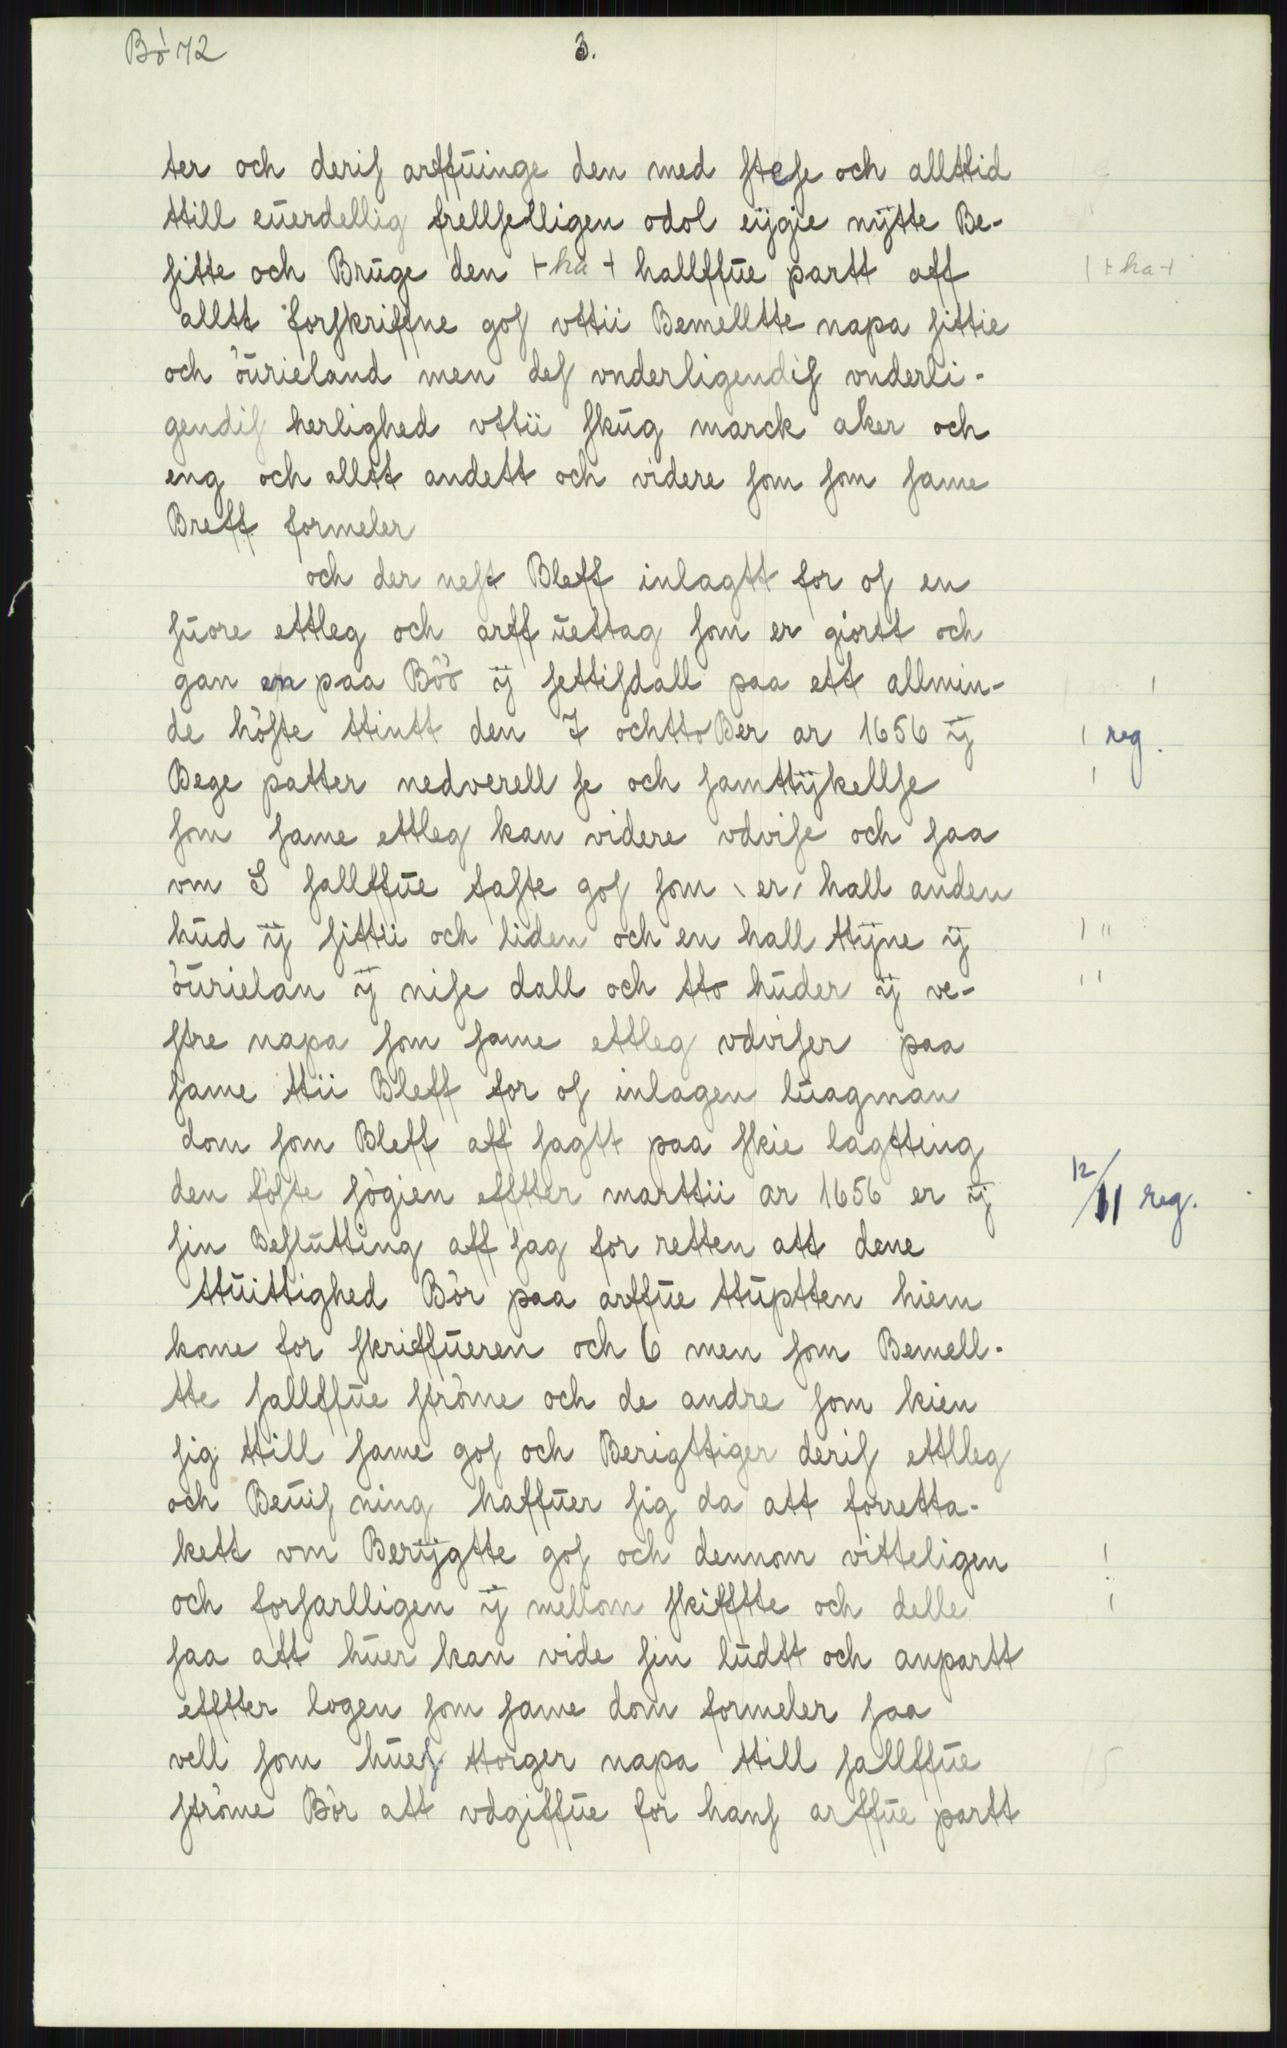 Bö 72
3.
ter och deriſ arffuinge den med ſteſe och allttid
ttill euerdellig frellſelligen odol eÿgie nÿtte Be-
ſitte och Bruge den + ha + hallffue partt aff
+ ha +
alltt forſkriffne goſ vttii Bemelltte napa ſittie
och öurieland men deſ vnderligendiſ vnderli-
gendiſ herlighed vttii ſkug marck aker och
eng och alltt andett och videre ſom ſom ſame
Breff formeler
och der neſt Bleff inlagtt for oſ en
ſuore ettleg och arff uettag ſom er giortt och
gan en paa Böö ÿ ſettiſdall paa ett allmin-
de höſte ttintt den 7 ochttoBer ar 1656 ÿ
reg.
Bege patter nedverell ſe och ſamttÿkellſe
ſom ſame ettleg kan videre vdviſe och ſaa
vm S ſallffue ſaſte goſ ſom er hall anden
hud ÿ ſittii och liden och en hall ttÿne ÿ
öurielan ÿ niſe dall och tto huder ÿ ve-
ſtre napa ſom ſame ettleg vdviſer paa
ſame ttii Bleff for oſ inlagen luagman
dom ſom Bleff aff ſagtt paa ſkie lagtting
den föſte ſögien effter marttii ar 1656 er ÿ
12/11 reg.
ſin Beſlutting aff ſag for retten att dene
ttuittighed Bör paa arffue ttuptten hiem
kome for ſkriffueren och 6 men ſom Bemell-
tte ſallffue ſtröme och de andre ſom kien
ſig ttill ſame goſ och Berigttiger deriſ ettleg
och Beuiſ ning haffuer ſig da att forretta-
kett vm Berÿgtte goſ och dennom vitteligen
och forſarlligen ÿ mellom ſkiffte och delle
ſaa att huer kan vide ſin ludtt och anpartt
effter logen ſom ſame dom formeler ſaa
vell ſom hueſ ttorger napa ttill ſallffue
ſtröme Bör att vdgiffue for hanſ arffue partt